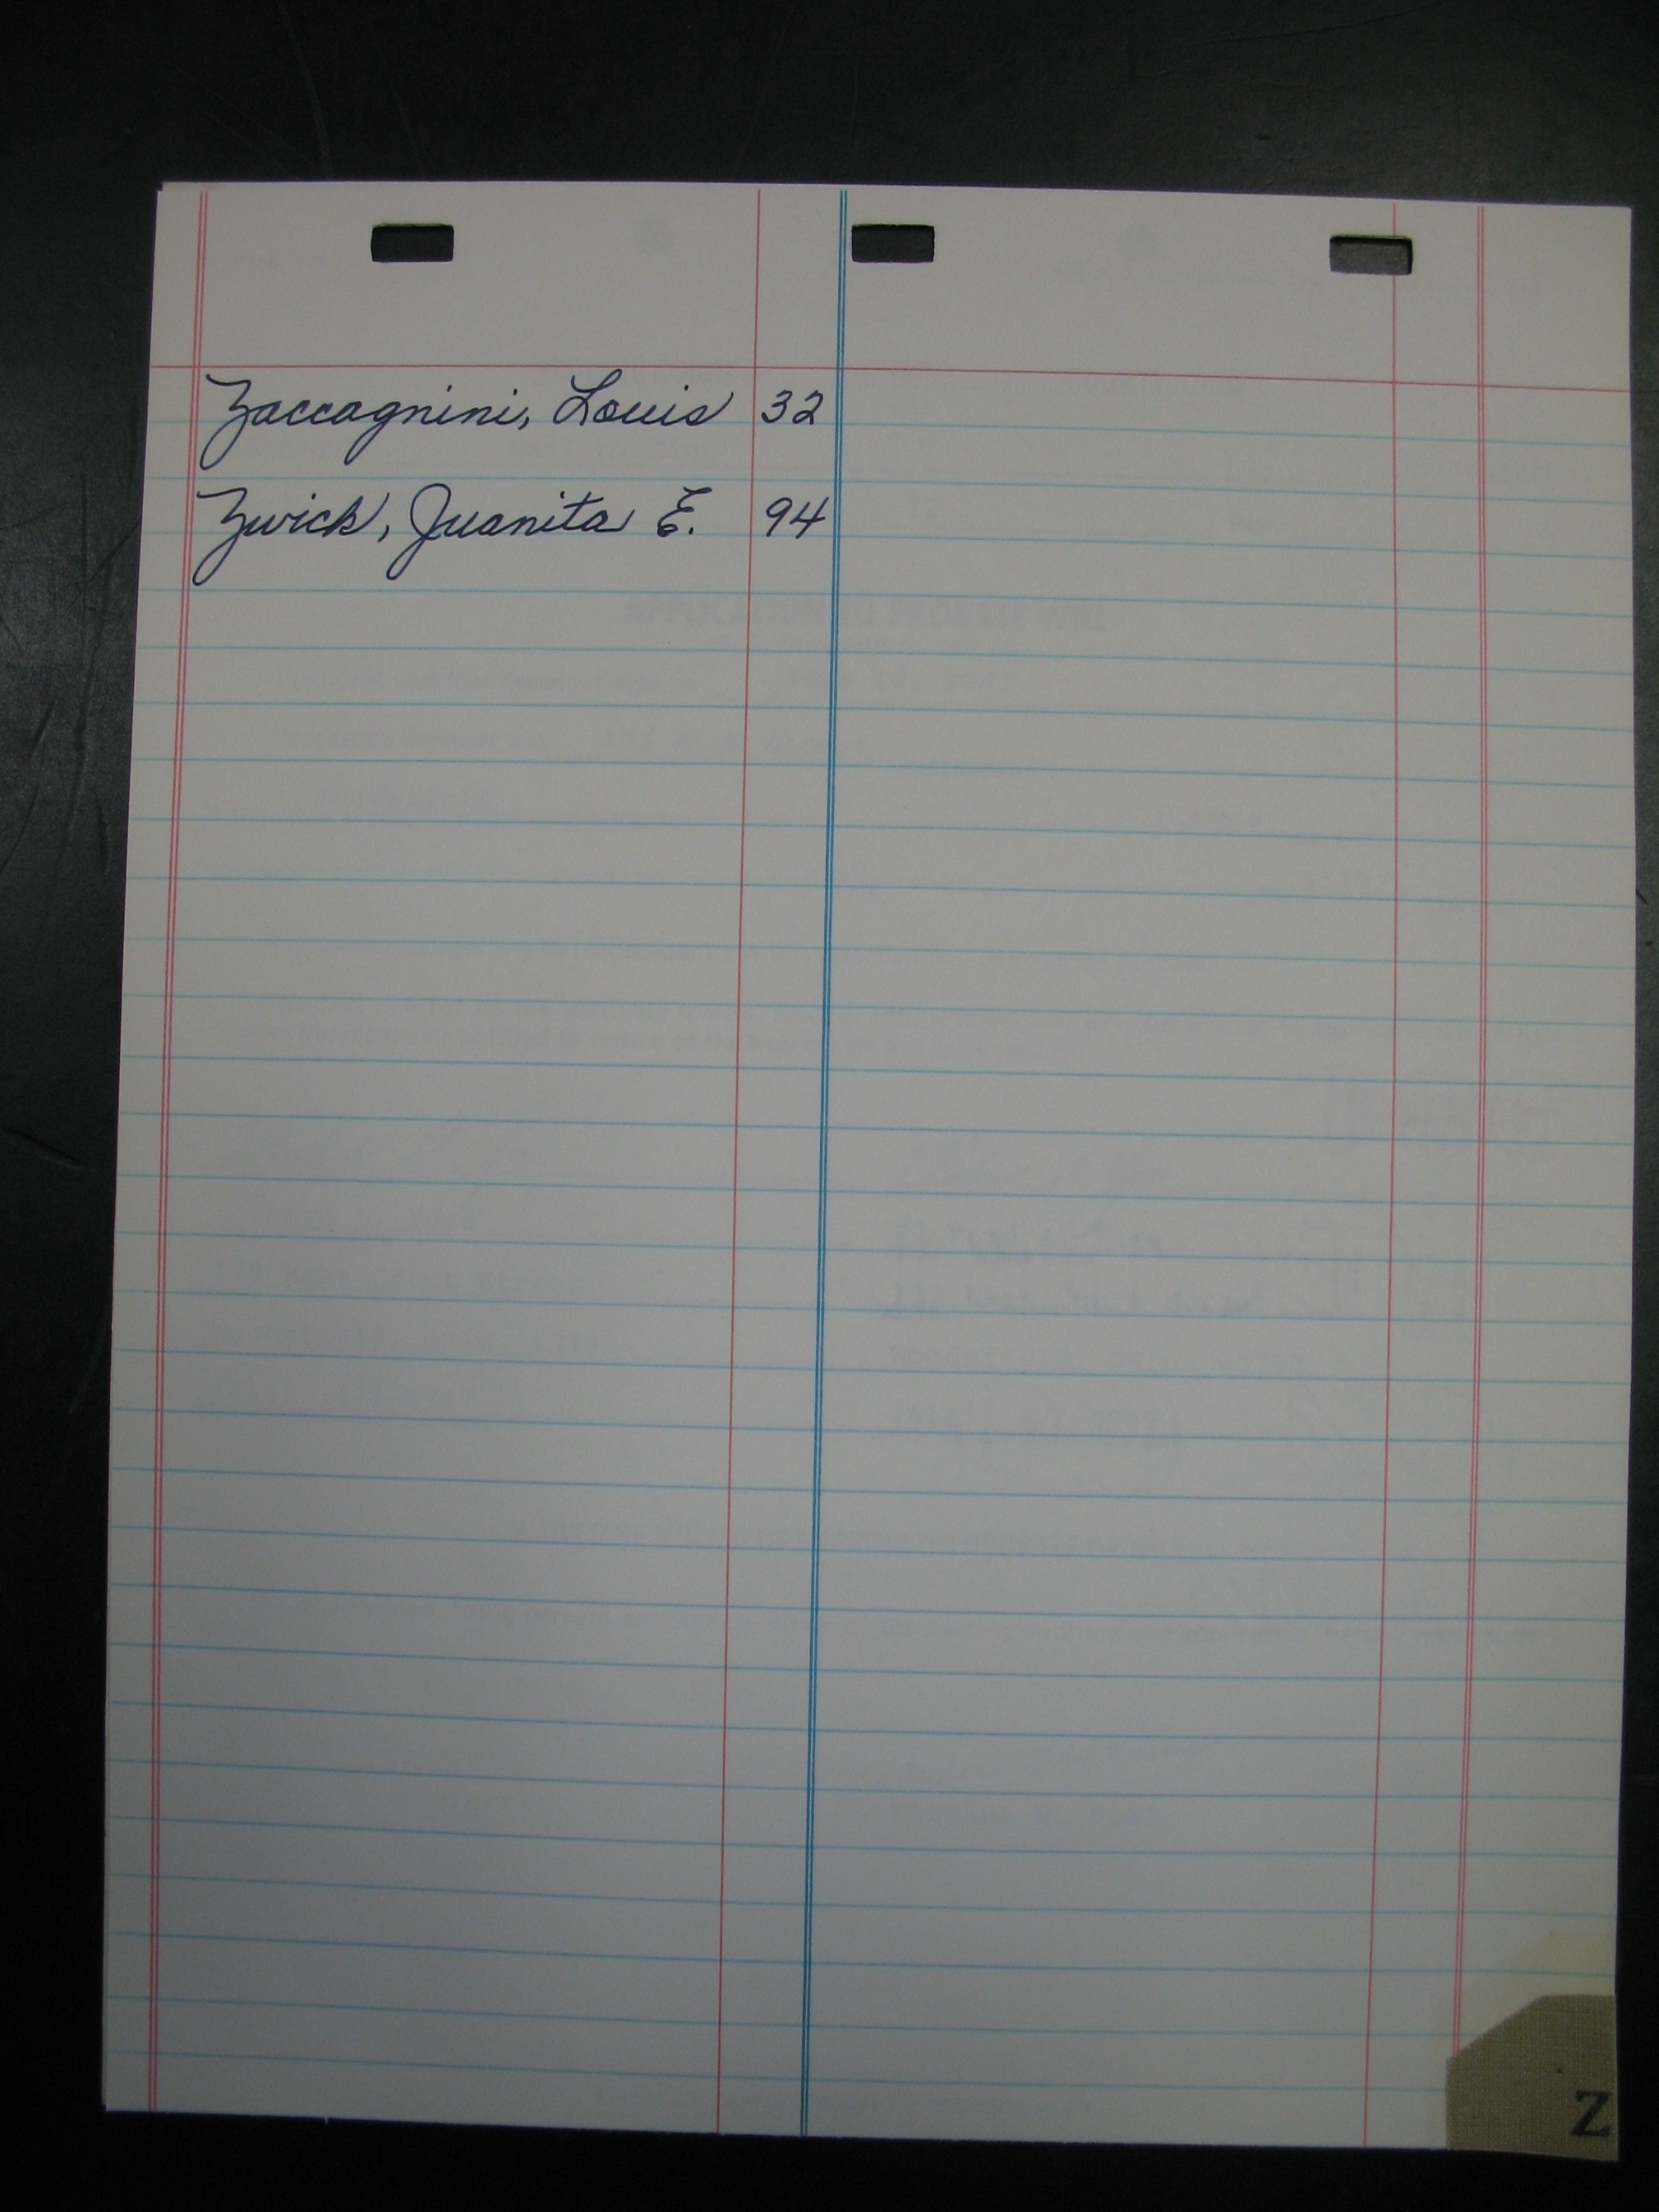 Zaccagnini, Louis 32
Zwick, Juanita E. 94
Z